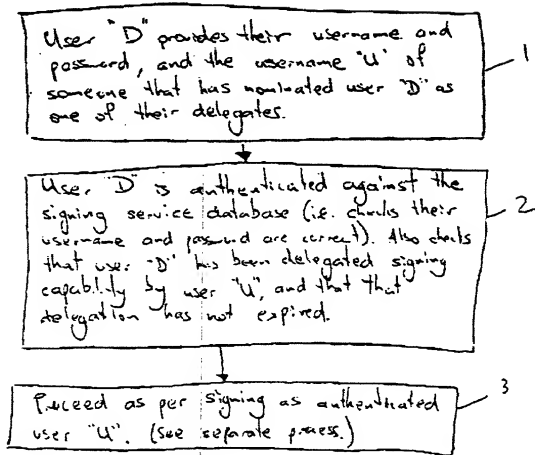 User "D" provides their username and
password, and the username "U" of
someone that has nominated user "D" as
one of their delegates.
1
User "D" is authenticated against the
signing service database (i.e. checks their
username and password are correct). Also checks
that user "D" has been delegated signing
capability by user "U", and that that
delegation has not expired.
2
Proceed as per signing as authenticated
user "U". (See separate process.)
3